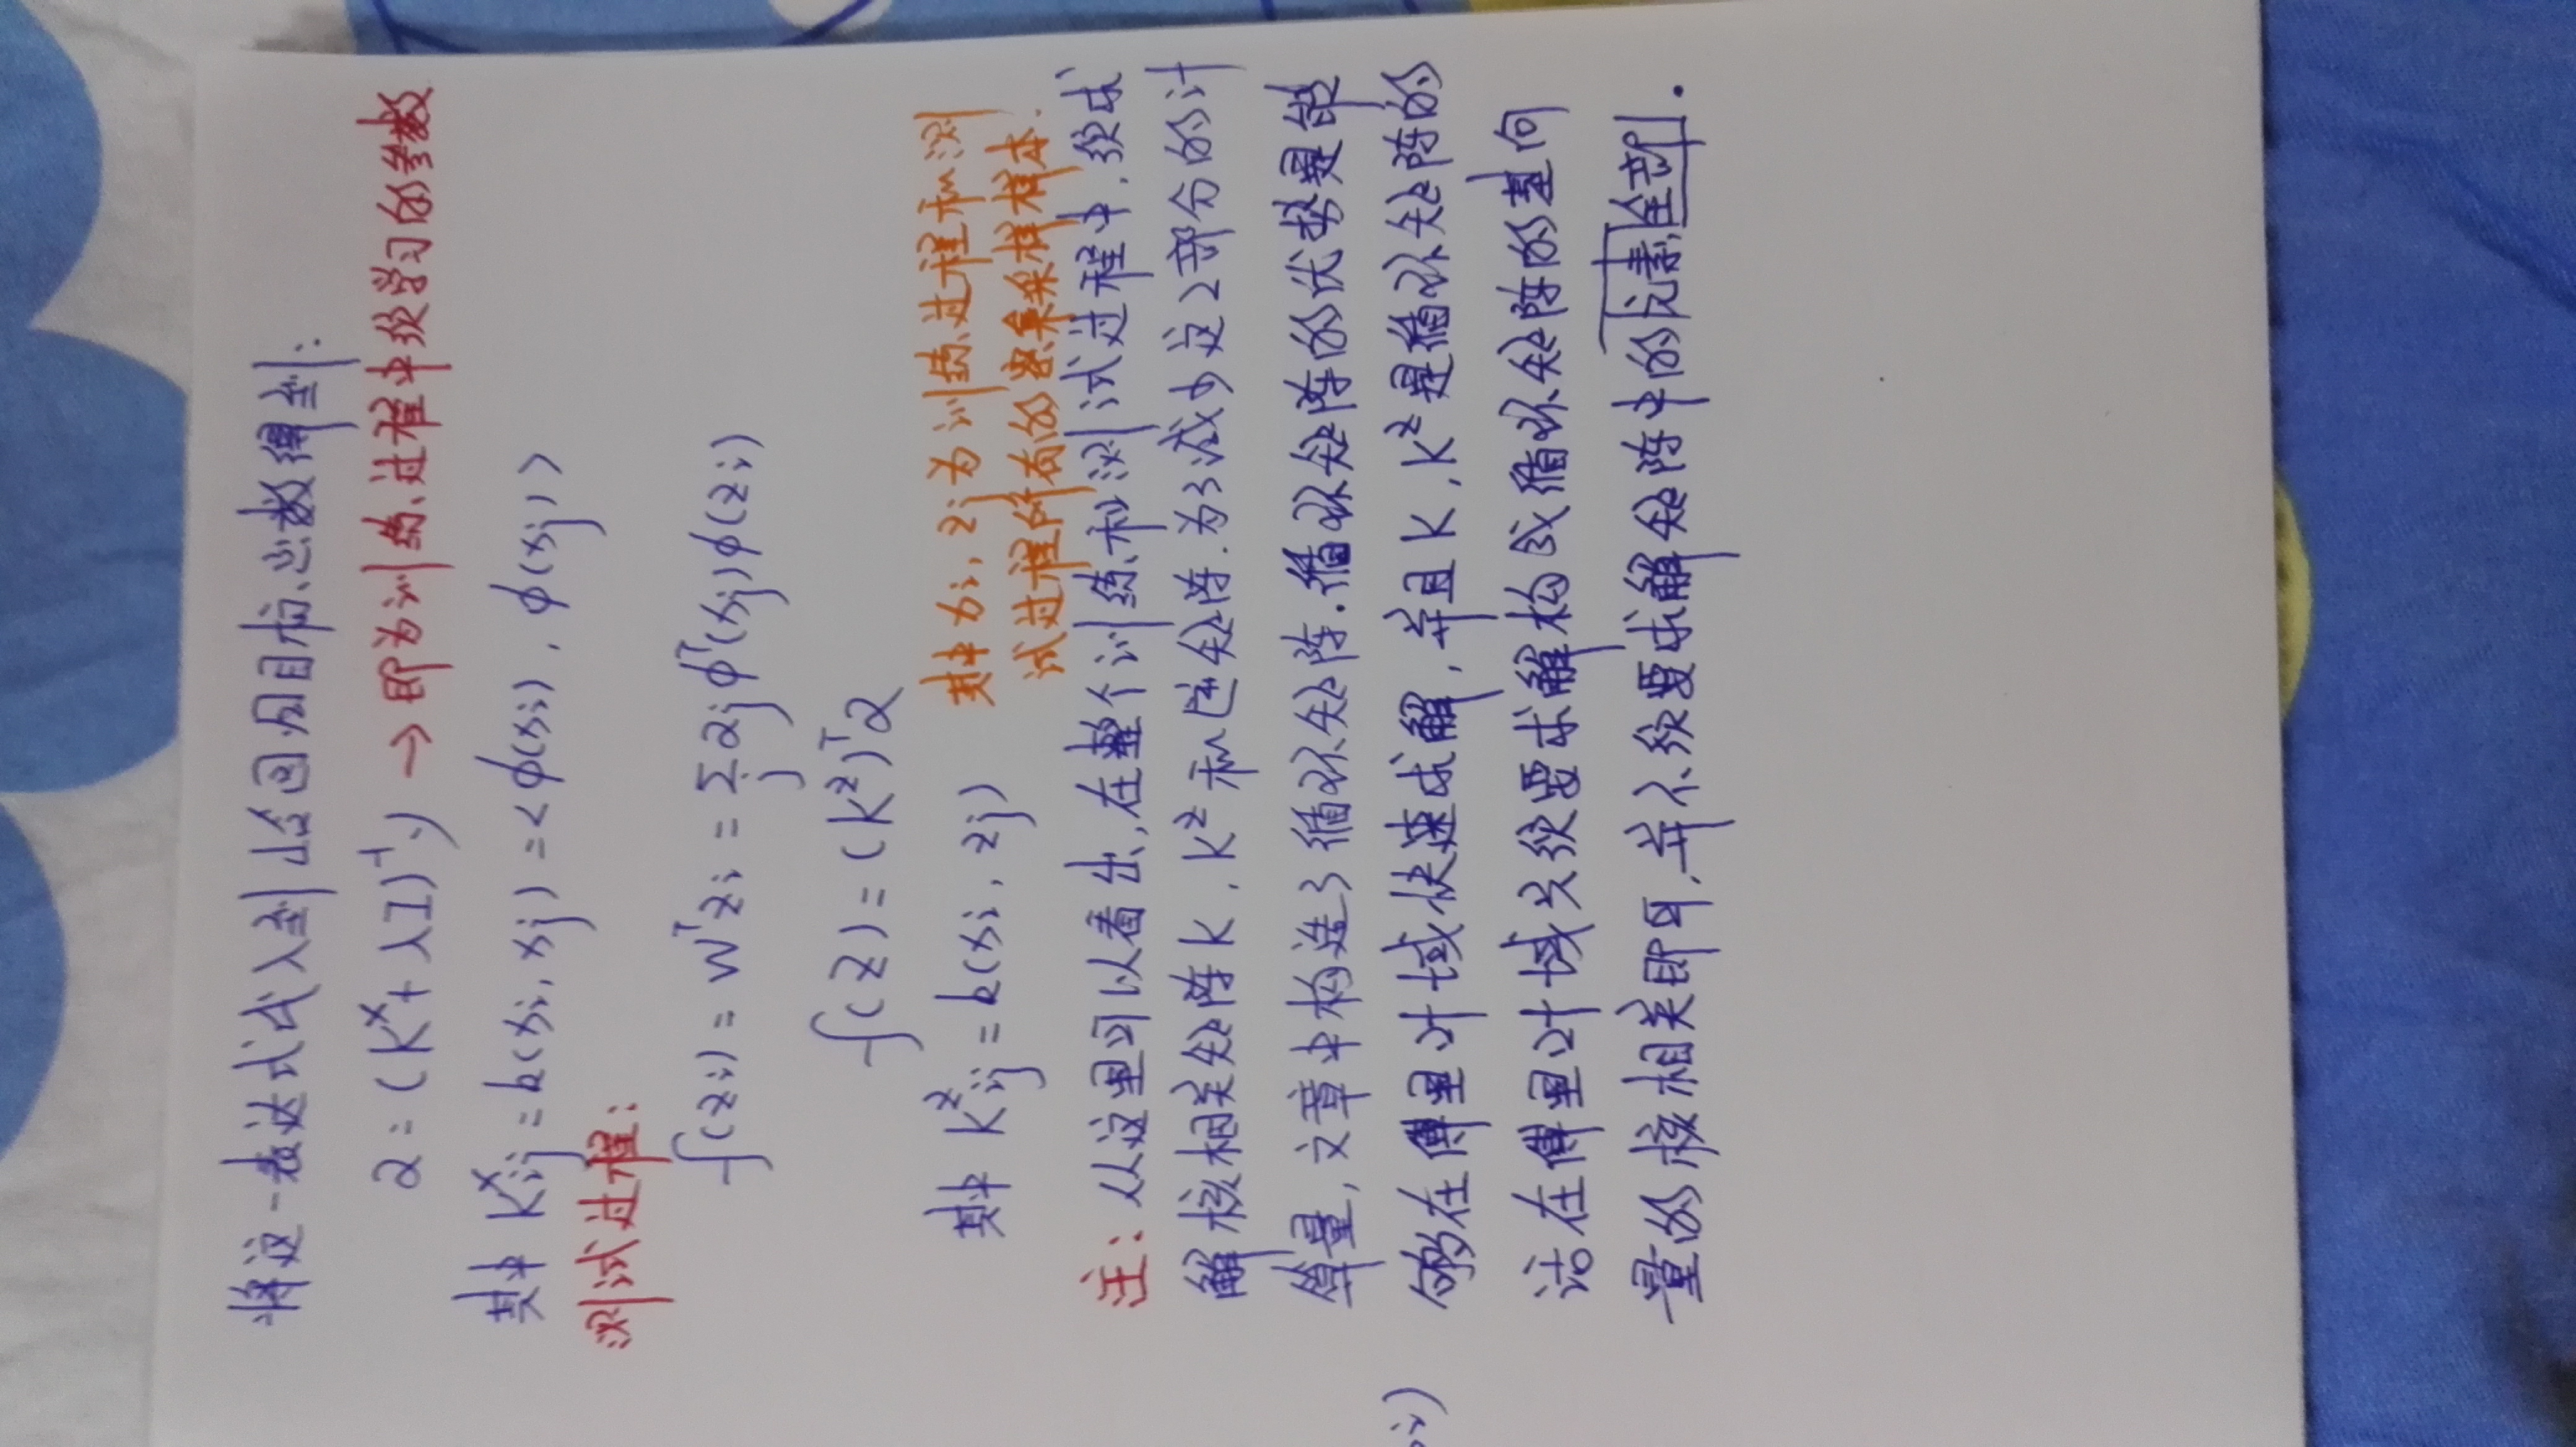 将这一表达式代入到岭回归目标函数得到:
α = (K^x + λI)^{-1} y → 即为训练过程中须学习的参数
其中 K^x_{ij} = k(x_i, x_j) = <φ(x_i), φ(x_j)>
测试过程:
f(z_i) = w^T z_i = Σ_j α_j φ^T(x_j) φ(z_i)
f(z) = (K^z)^T α
其中 K^z_{ij} = k(x_i, z_j)
其中 x_i, z_j 为训练过程和测
试过程所有的密集采样样本.
注: 从这里可以看出, 在整个训练和测试过程中, 须求
解核相关矩阵 K, K^z 和逆矩阵. 为了减少这2部分的计
算量, 文章中构造了循环矩阵. 循环矩阵的优势是能
够在傅里叶域快速求解, 并且 K, K^z 是循环矩阵的
话在傅里叶域只须要求解构成循环矩阵的基向
量的核相关即可, 并不须要求解矩阵中的元素全部.